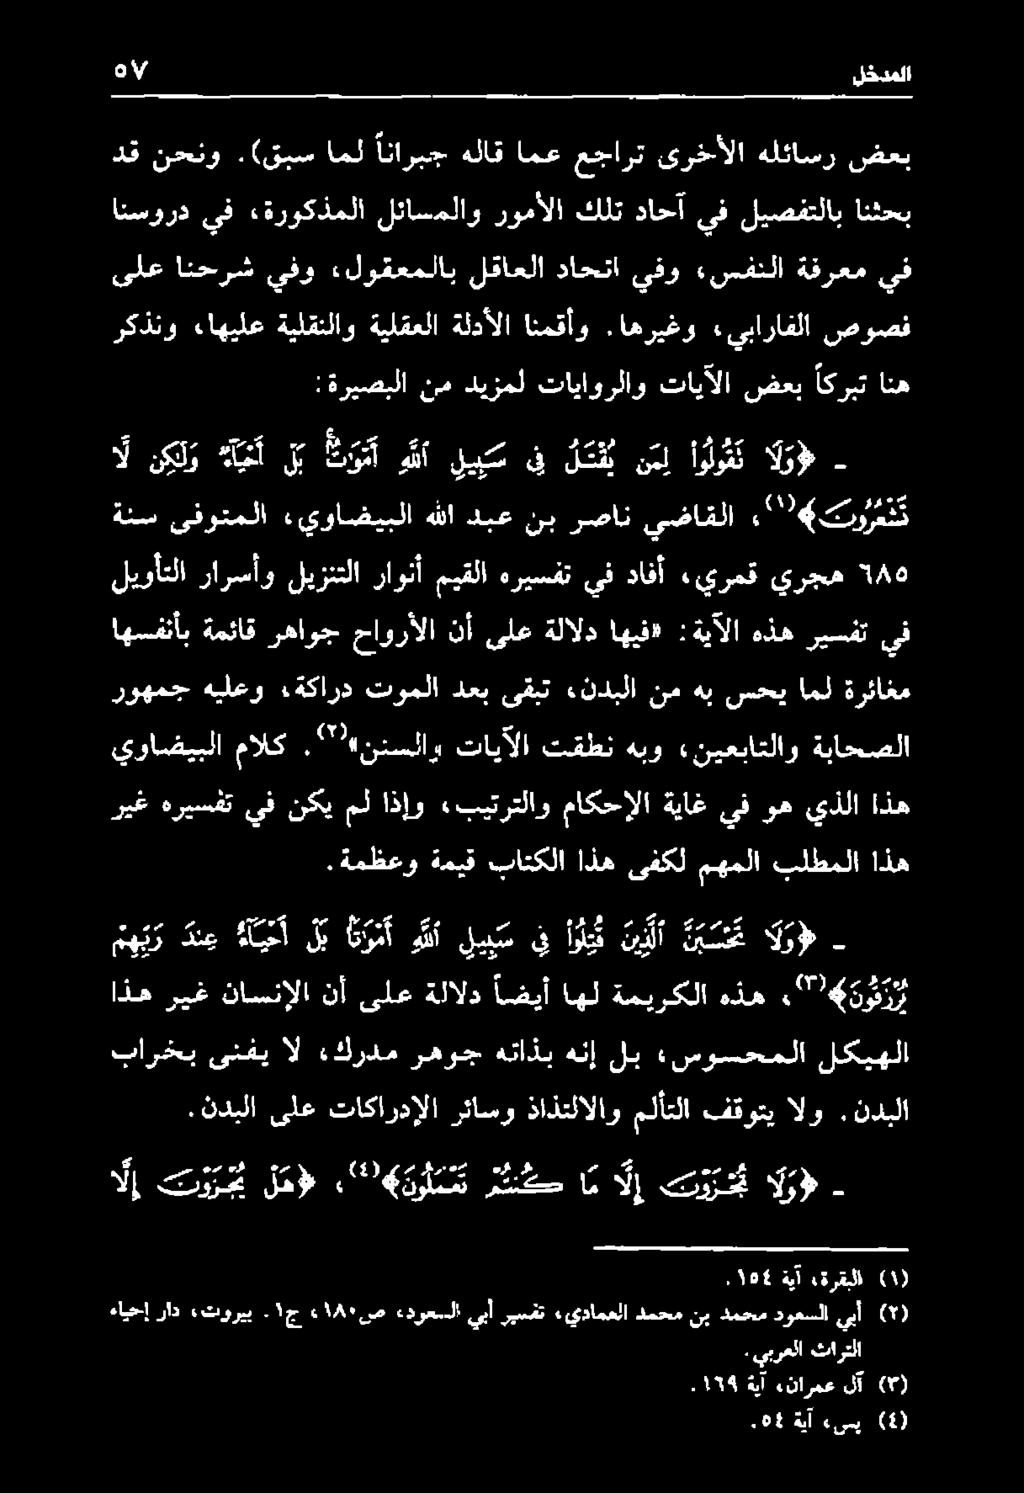 المدخل ٥٧
بعض رسائله الأخرى تراجع عما قاله جبراناً لما سبق). ونحن قد
بحثنا بالتفصيل في آحاد تلك الأمور والمسائل المذكورة، في دروسنا
في معرفة النفس، وفي اتحاد العاقل بالمعقول، وفي شرحنا على
فصوص الفارابي، وغيرها. وأقمنا الأدلة العقلية والنقلية عليها، ونذكر
هنا تبركاً بعض الآيات والروايات لمزيد من البصيرة:
- ﴿وَلَا نَقُولُوا لِمَن يُقْتَلُ فِي سَبِيلِ اللَّهِ أَمْوَاتٌ بَلْ أَحْيَاءٌ وَلَكِن لَّا
تَشْعُرُونَ﴾(١)، القاضي ناصر بن عبد الله البيضاوي، المتوفى سنة
٦٨٥ هجري قمري، أفاد في تفسيره القيم أنوار التنزيل وأسرار التأويل
في تفسير هذه الآية: «فيها دلالة على أن الأرواح جواهر قائمة بأنفسها
مغائرة لما يحس به من البدن، تبقى بعد الموت دراكة، وعليه جمهور
الصحابة والتابعين، وبه نطقت الآيات والسنن»(٢). كلام البيضاوي
هذا الذي هو في غاية الإحكام والترتيب، وإذا لم يكن في تفسيره غير
هذا المطلب المهم لكفى هذا الكتاب قيمة وعظمة.
- ﴿وَلَا تَحْسَبَنَّ الَّذِينَ قُتِلُوا فِي سَبِيلِ اللَّهِ أَمْوَاتًا بَلْ أَحْيَاءٌ عِندَ رَبِّهِمْ
يُرْزَقُونَ﴾(٣)، هذه الكريمة لها أيضاً دلالة على أن الإنسان غير هذا
الهيكل المحسوس، بل إنه بذاته جوهر مدرك، لا يفنى بخراب
البدن. ولا يتوقف التألم والالتذاذ وسائر الإدراكات على البدن.
- ﴿وَلَا تُجْزَوْنَ إِلَّا مَا كُنتُمْ تَعْمَلُونَ﴾(٤)، ﴿هَلْ يُجْزَوْنَ إِلَّا
(١) البقرة، آية ١٥٤.
(٢) أبي السعود محمد بن محمد العمادي، تفسير أبي السعود، ص١٨٠، ج١. بيروت، دار إحياء
التراث العربي.
(٣) آل عمران، آية ١٦٩.
(٤) يس، آية ٥٤.